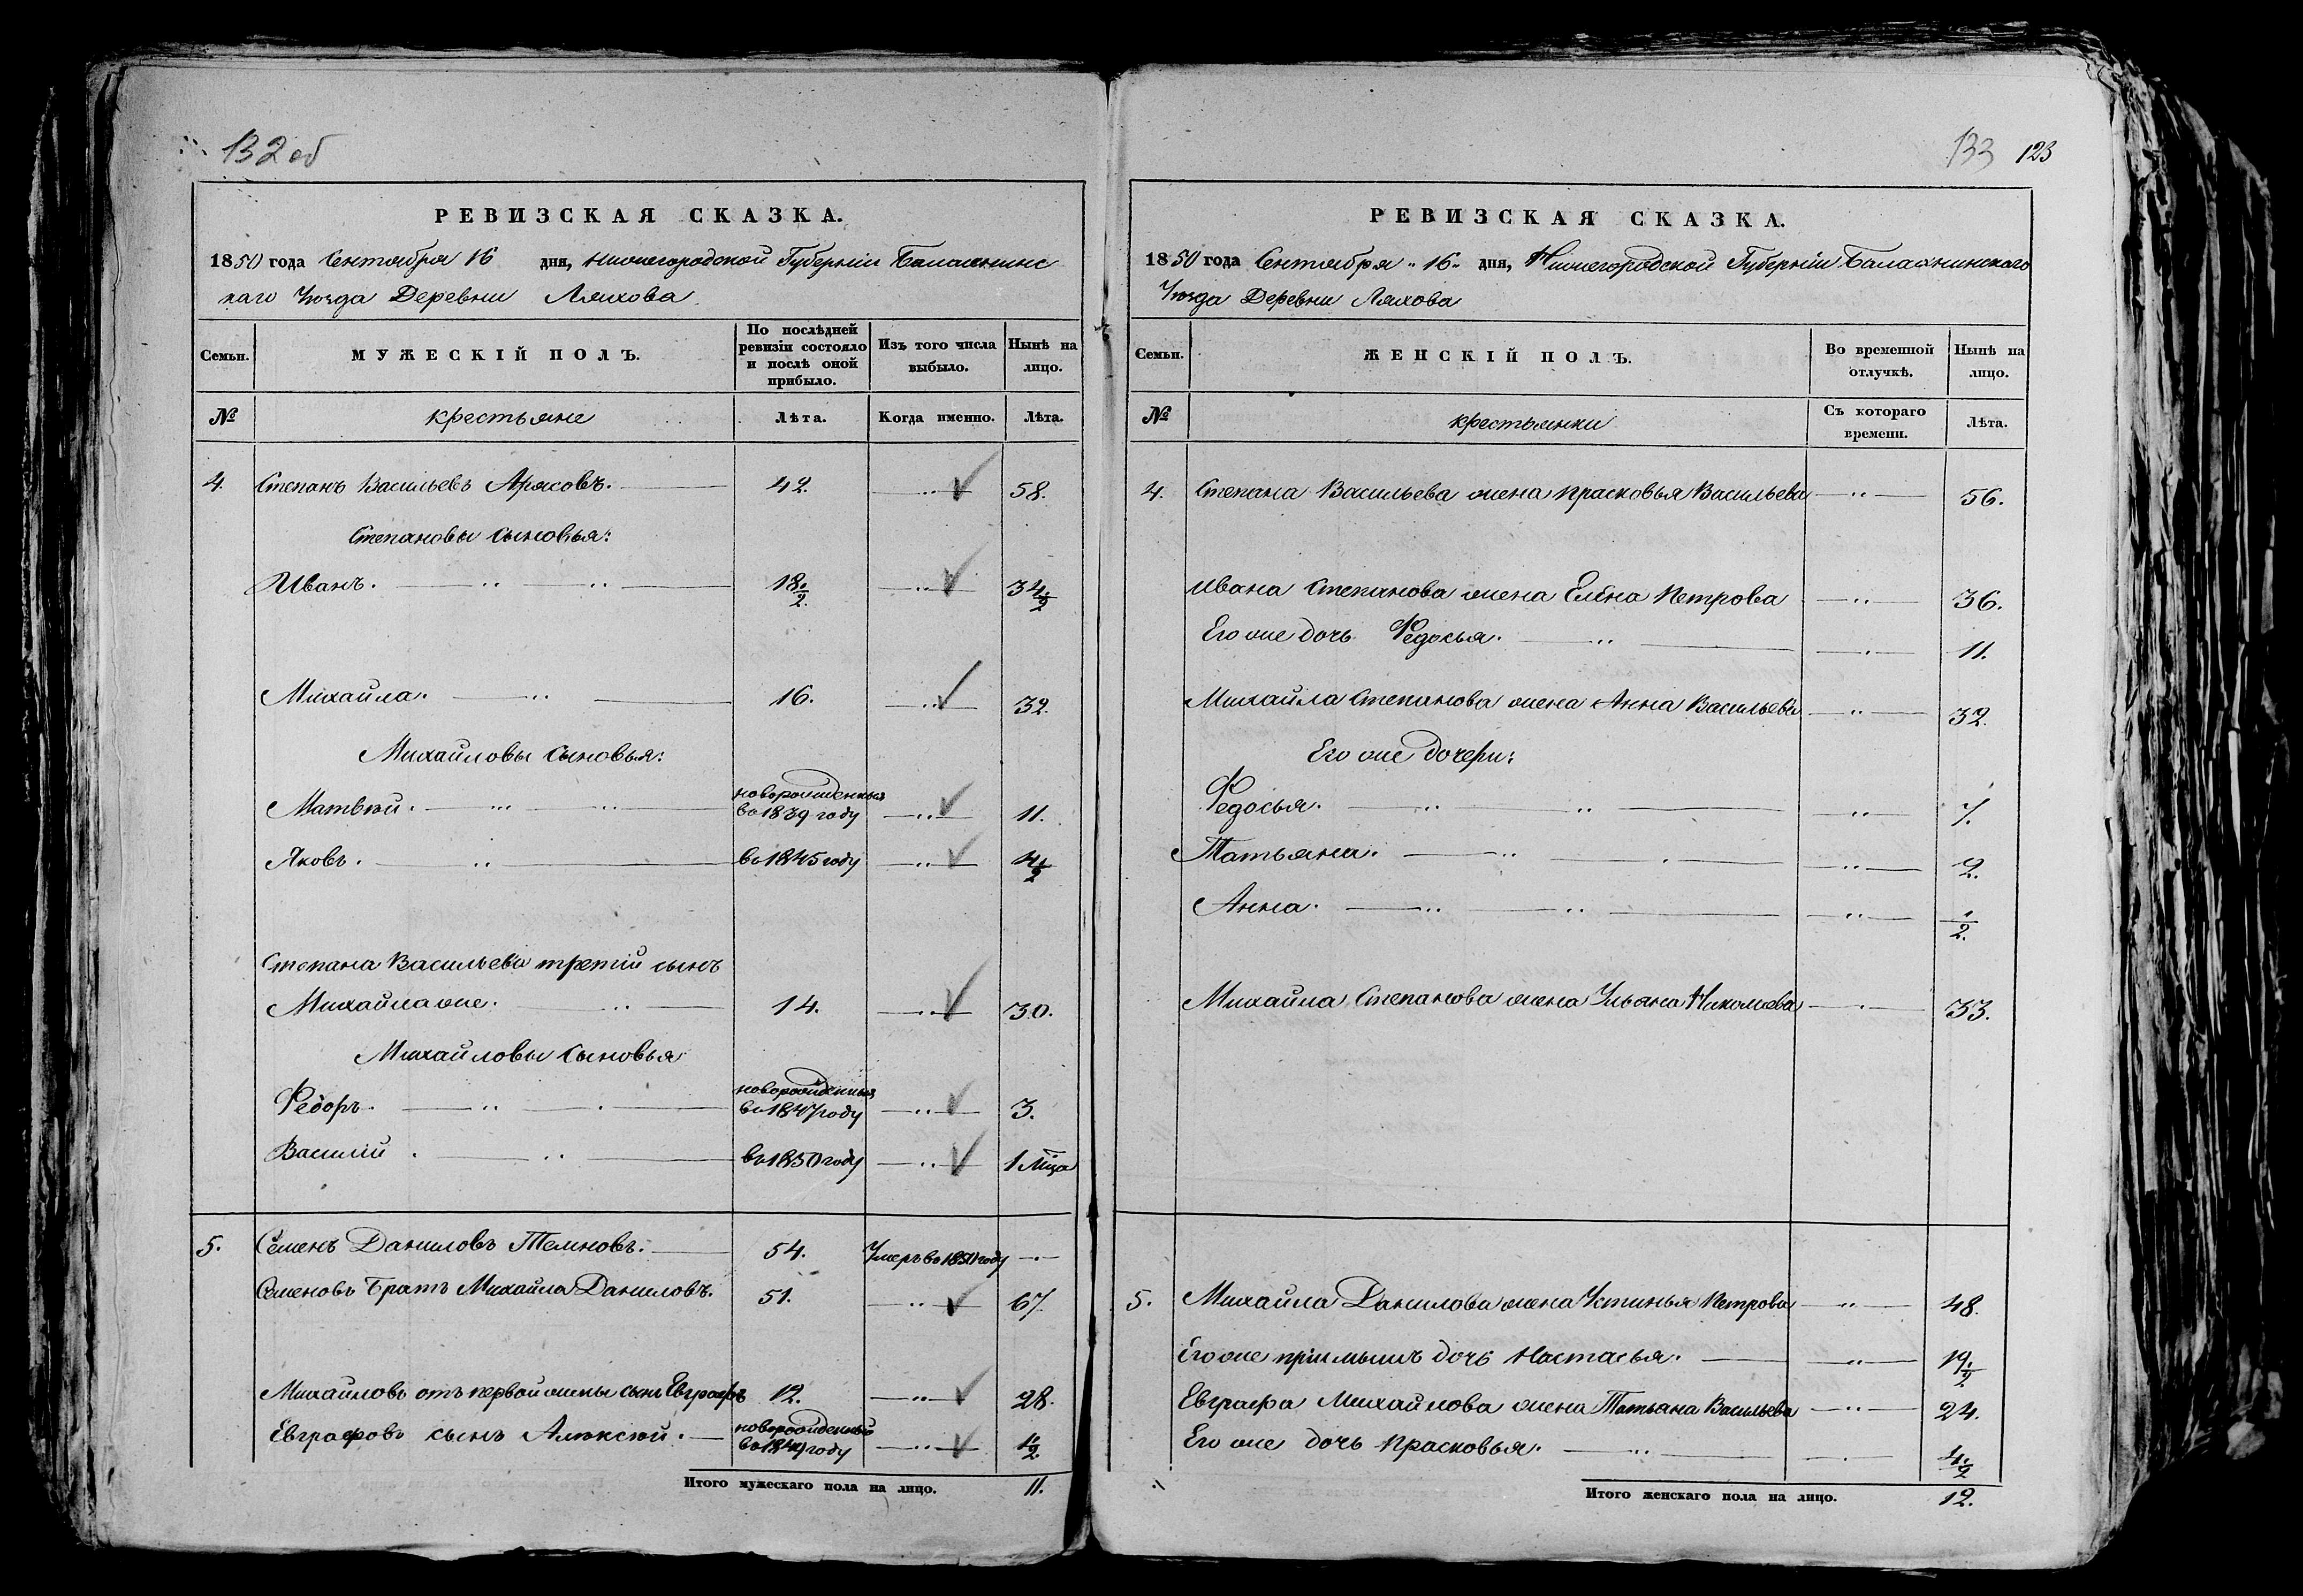 132 об
РЕВИЗСКАЯ СКАЗКА.
1850 года Сентября 16 дня, Нижегородской Губернiи Балахнинс
каго Уѣзда Деревни Ляхова
Семьи.
МУЖЕСКІЙ ПОЛЪ.
По послѣдней ревизіи состояло и послѣ оной прибыло.
Изъ того числа выбыло.
Нынѣ на лицо.
№
крестьяне
Лѣта.
Когда именно.
Лѣта.
4. Степанъ Васильевъ Арясовъ. 42. 58.
Степановы сыновья:
Иванъ. 18 1/2. 34 1/2
Михайла. 16. 32.
Михайловы сыновья:
новорожденныя
Матвѣй. во 1839 году 11.
Яковъ. во 1845 году 4 1/2
Степана Васильева третій сынъ
Михайла же. 14. 30.
Михайловы сыновья
новорожденныя
Ѳедоръ. во 1847 году 3.
Василій. во 1850 году 1 м͠ца
5. Семенъ Даниловъ Темновъ. 54. Умеръ во 1850 году
Семеновъ братъ Михайла Даниловъ. 51. 67.
Михайловъ отъ первой жены сынъ Евграфъ 12. 28.
новорожденный
Евграфовъ сынъ Алексѣй. во 1849 году 1/2
Итого мужескаго пола на лицо. 11.
133 123
РЕВИЗСКАЯ СКАЗКА.
1850 года Сентября 16 дня, Нижегородской Губерніи Балахнинскаго
Уѣзда Деревни Ляхова
Семьи.
ЖЕНСКІЙ ПОЛЪ.
Во временной отлучкѣ.
Нынѣ на лицо.
№
крестьянки
Съ котораго времени.
Лѣта.
4. Степана Васильева жена Прасковья Васильева 56.
Ивана Степанова жена Елена Петрова 36.
Его же дочь Ѳедосья. 11.
Михайла Степанова жена Анна Васильева 32.
Его же дочери:
Ѳедосья. 7.
Татьяна. 2.
Анна. 1/2.
Михайла Степанова жена Ульяна Николаева 33.
5. Михайла Данилова жена Устинья Петрова 48.
Его же пріимышъ дочь Настасья. 19 1/2
Евграфа Михайлова жена Татьяна Васильева 24.
Его же дочь Прасковья. 4 1/2
Итого женскаго пола на лицо. 12.